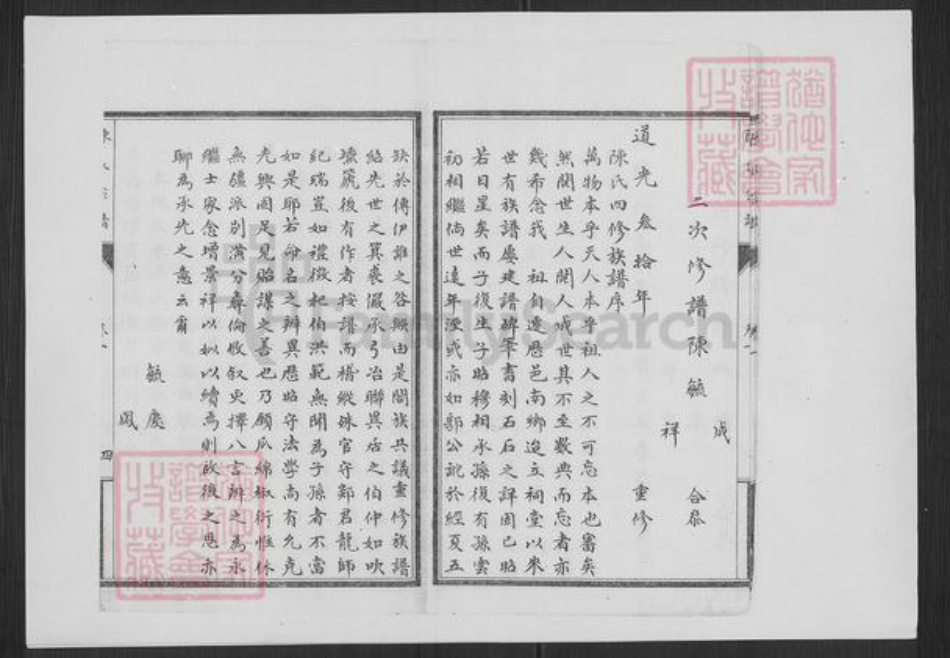 二次修譜陳毓成祥 合叅
道光叁拾年 重修
陳氏四修族譜序
萬物本乎天人本乎祖人之不可忘本也審矣
然閱世生人閱人成世其不至數典而忘者亦
幾希念我 祖自遷歷邑南鄉迨立祠堂以來
世有族譜屢建譜碑筆書刻石石之詳固已昭
若日星矣而子復生子昭穆相承孫復有孫雲
初相繼倘世遠年湮或亦如郭公訛於經夏五
缺於傳伊誰之咎歟由是闔族共議重修族譜
紹先世之箕裘儼承弓冶聯異居之伯仲如吹
壎篪後有作者按譜而稽縱殊官守鄭君龍師
紀瑞豈如禮徵杞伯洪範無聞為子孫者不當
如是耶若命名之辨異歷昭守法學尚有允克
光興固足見貽謀之善也乃願瓜綿椒衍惟休
無疆派別演分彝倫攸叙更擇八言辨之為永
繼士家念增景祥以似以續為則啟後之思亦
聊為承先之意云爾
毓慶
風
陳氏宗譜
卷一
四
FamilySearch